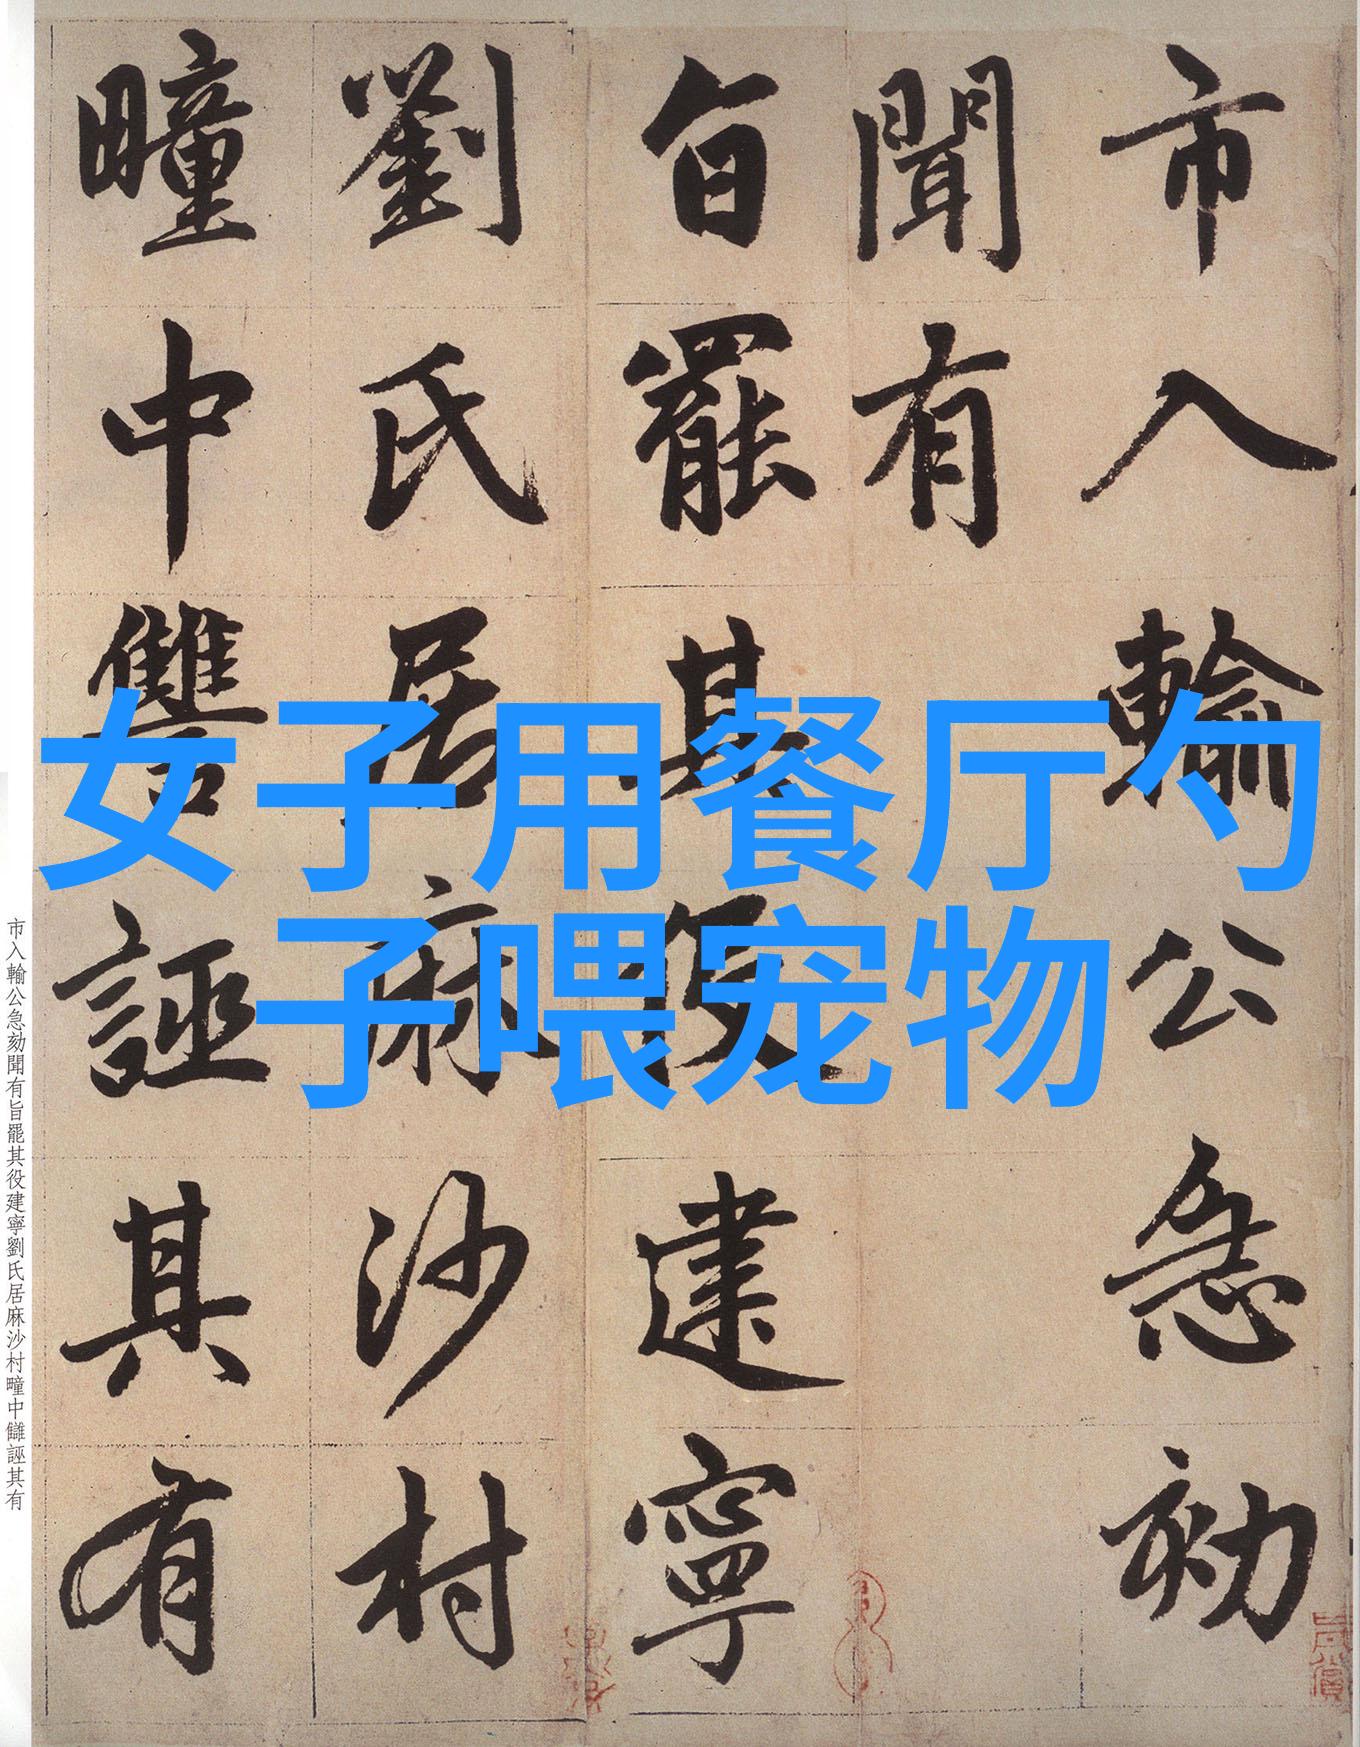 市入輸公急劾
聞有
旨罷其役建寧
劉氏居麻沙村
疃中讐誣其有
女子用餐厅勺
子喂宠物
市入輸公急劾聞有旨罷其役建寧劉氏居麻沙村疃中讎誣其有